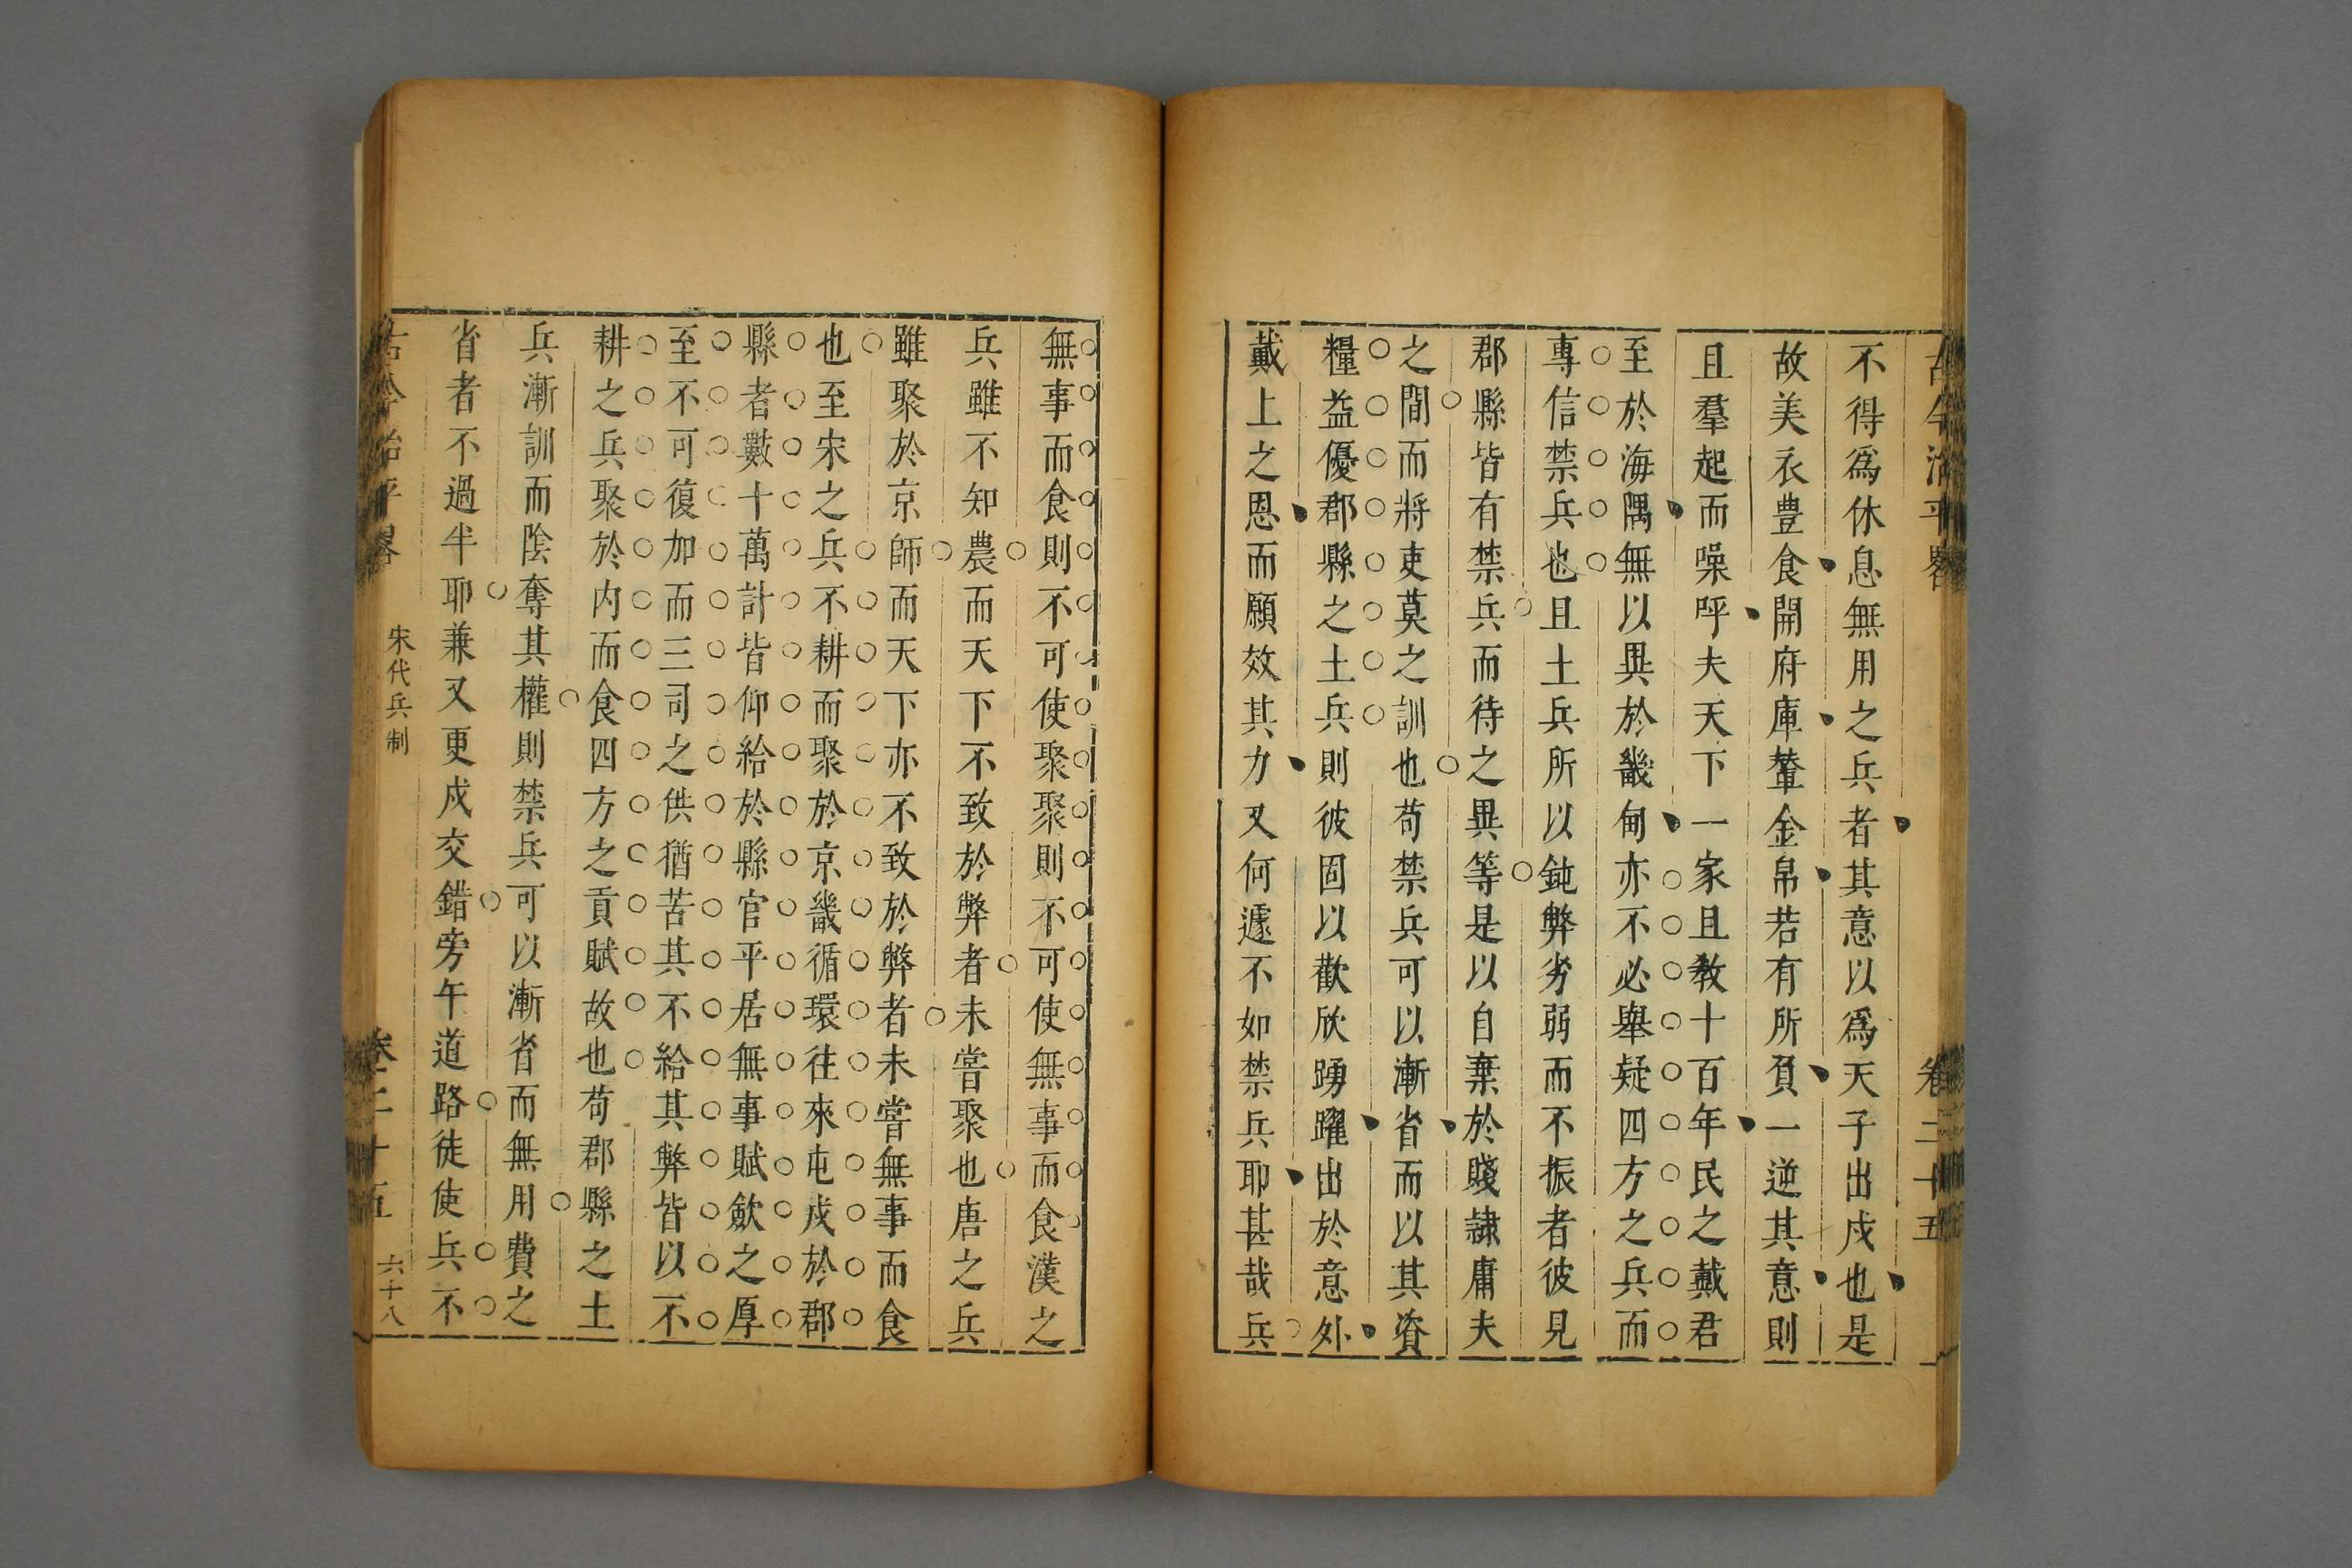 古今治平畧 卷二十五
不得爲休息無用之兵者其意以爲天子出戍也是
故美衣豊食開府庫輦金帛若有所負一逆其意則
且羣起而噪呼夫天下一家且教十百年民之戴君
至於海隅無以異於畿甸亦不必舉疑四方之兵而
專信禁兵也且土兵所以鈍弊劣弱而不振者彼見
郡縣皆有禁兵而待之異等是以自棄於賤隷庸夫
之間而將吏莫之訓也苟禁兵可以漸省而以其資
糧益優郡縣之土兵則彼固以歡欣踴躍出於意外
戴上之恩而願效其力又何遽不如禁兵耶甚哉兵
無事而食則不可使聚聚則不可使無事而食漢之
兵雖不知農而天下不致於弊者未嘗聚也唐之兵
雖聚於京師而天下亦不致於弊者未嘗無事而食
也至宋之兵不耕而聚於京畿循環往來屯戍於郡
縣者數十萬計皆仰給於縣官平居無事賦歛之厚
至不可復加而三司之供猶苦其不給其弊皆以不
耕之兵聚於内而食四方之貢賦故也苟郡縣之土
兵漸訓而陰奪其權則禁兵可以漸省而無用費之
省者不過半耶兼又更戍交錯旁午道路徒使兵不
古今治平畧 宋代兵制 卷二十五 六十八